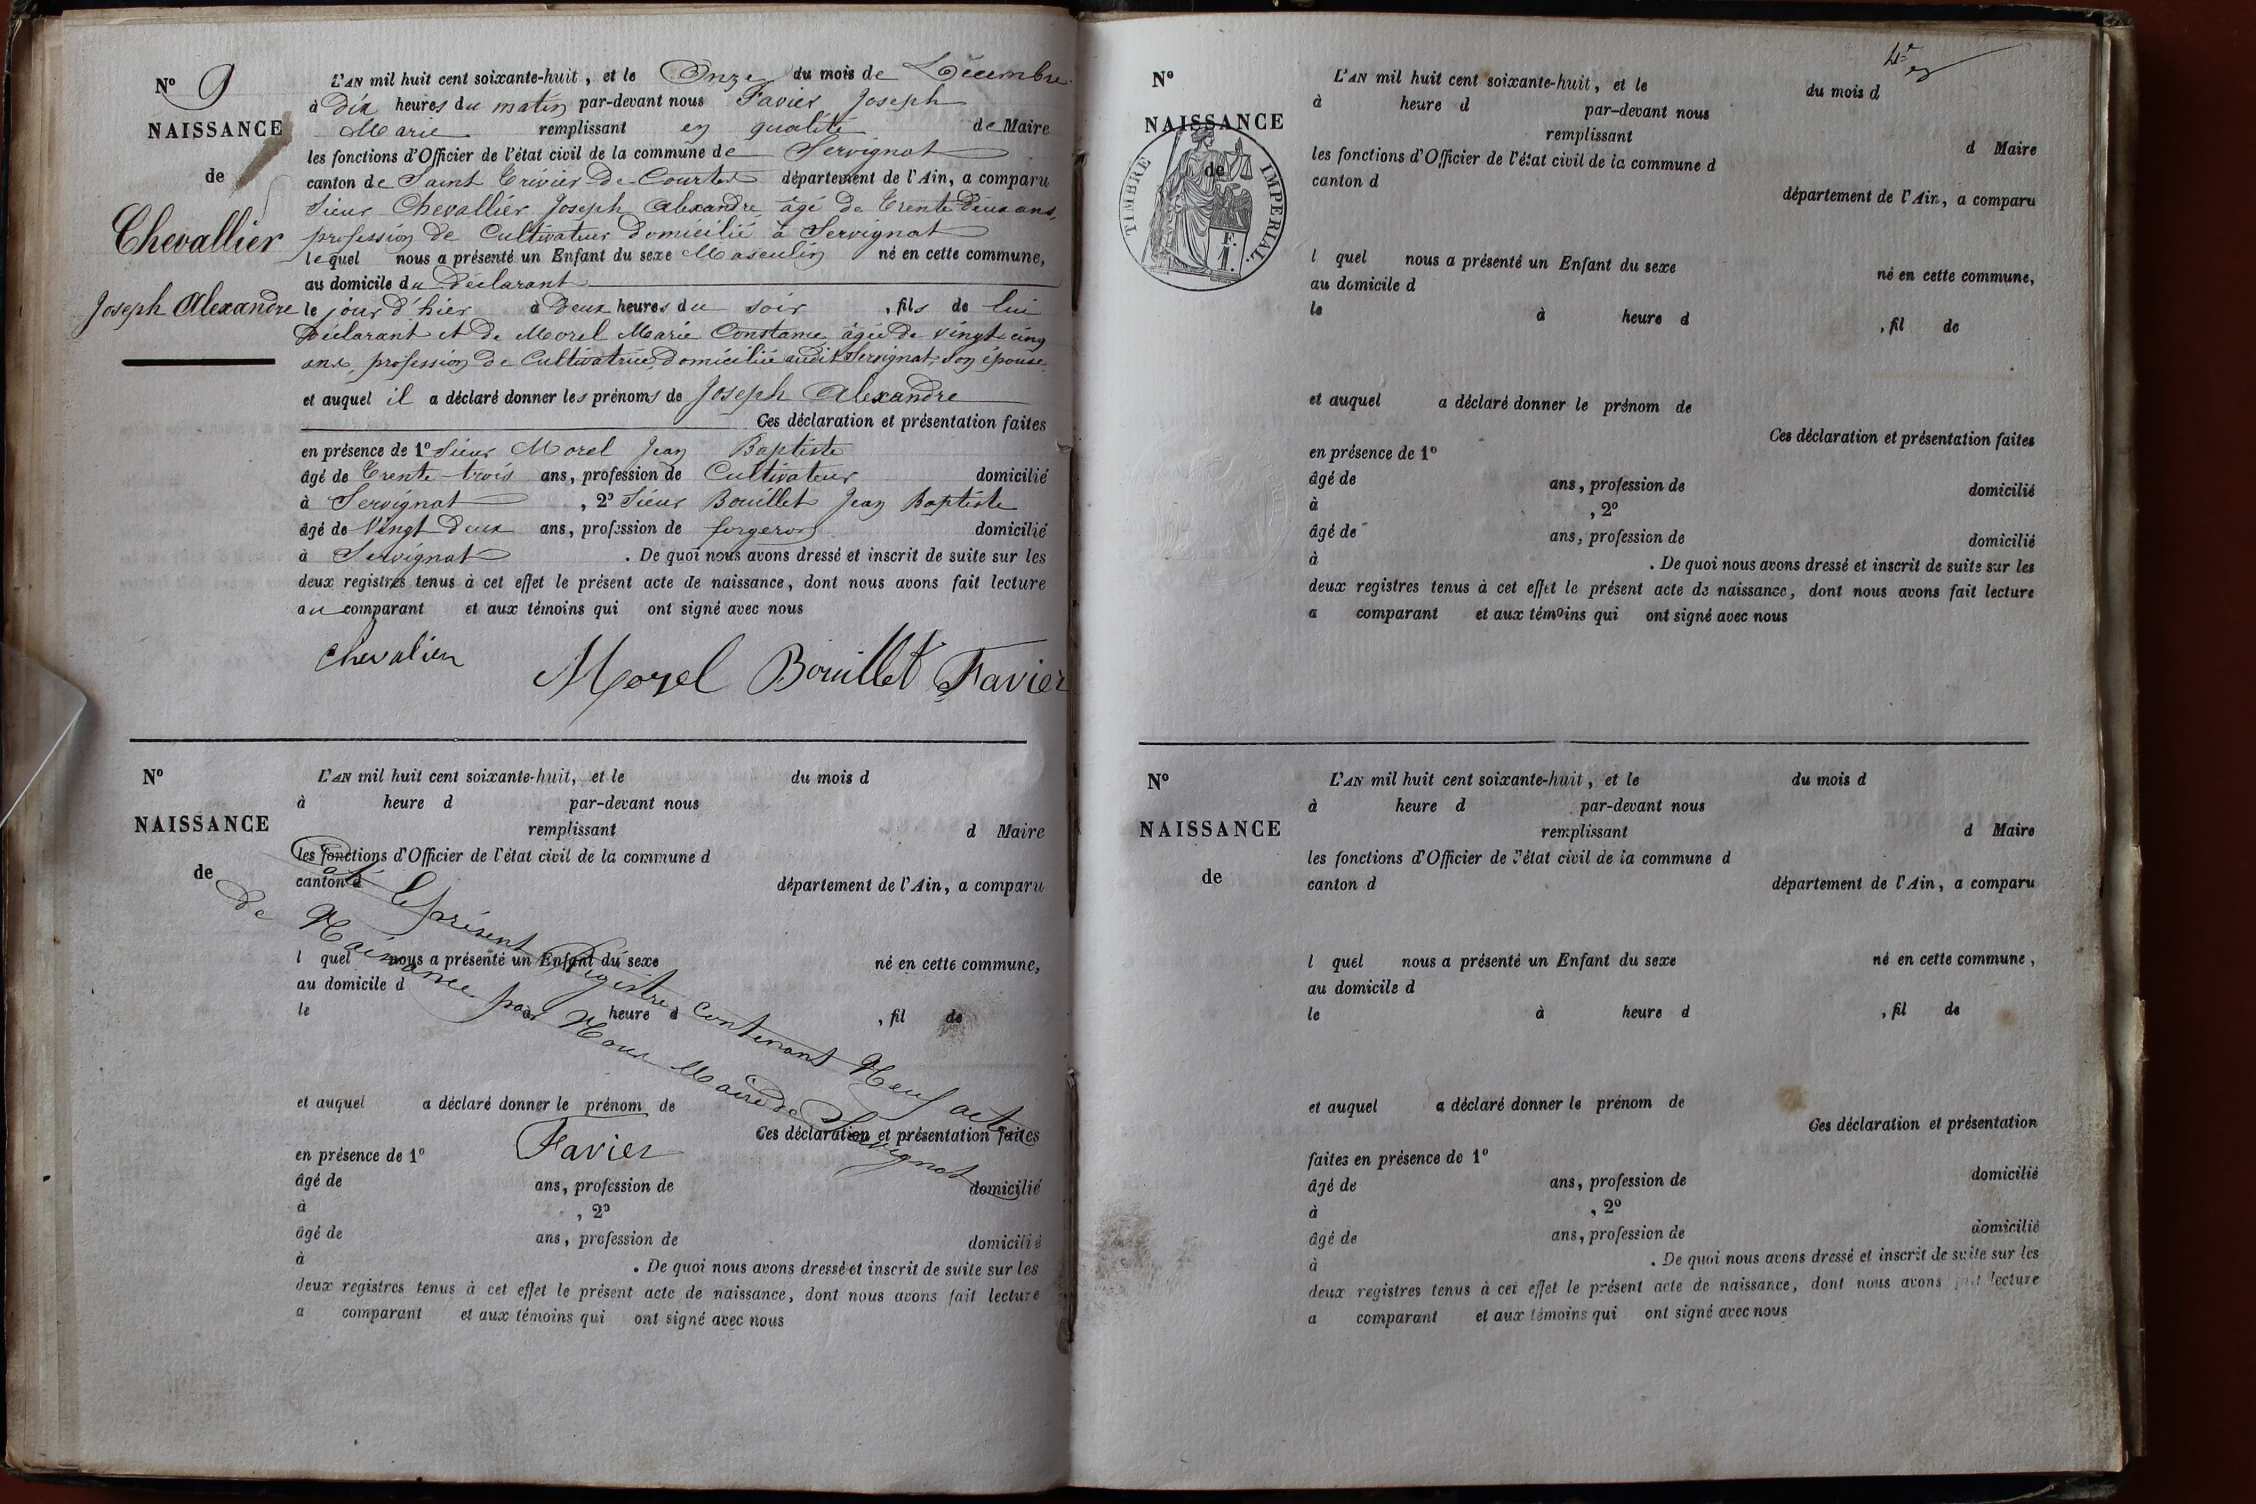 N° 9
NAISSANCE
de
Chevallier
Joseph Alexandre
L'AN mil huit cent soixante-huit, et le Onze du mois de Décembre
à Dix heures du matin par-devant nous Favier Joseph
Marie remplissant en qualité de Maire
les fonctions d'Officier de l'état civil de la commune de Servignat
canton de Saint Trivier De Courtes département de l'Ain, a comparu
Sieur Chevallier Joseph Alexandre âgé de Trente Deux ans,
profession de Cultivateur Domicilié à Servignat
lequel nous a présenté un Enfant du sexe Masculin né en cette commune,
au domicile du Déclarant
le jour d'hier à Deux heures du soir , fils de lui
Déclarant et de Morel Marie Constance âgée de vingt cinq
ans, profession de Cultivatrice, Domiciliée audit Servignat, son épouse
et auquel il a déclaré donner les prénoms de Joseph Alexandre
Ces déclaration et présentation faites
en présence de 1° Sieur Morel Jean Baptiste
âgé de Trente-trois ans, profession de Cultivateur domicilié
à Servignat , 2° Sieur Bouillet Jean Baptiste
âgé de Vingt Deux ans, profession de forgeron domicilié
à Servignat . De quoi nous avons dressé et inscrit de suite sur les
deux registres tenus à cet effet le présent acte de naissance, dont nous avons fait lecture
au comparant et aux témoins qui ont signé avec nous
Chevalier Morel Bouillet Favier
N°
NAISSANCE
de
L'AN mil huit cent soixante-huit, et le du mois d
à heure d par-devant nous
remplissant d Maire
les fonctions d'Officier de l'état civil de la commune d
canton d département de l'Ain, a comparu
l quel nous a présenté un Enfant du sexe né en cette commune,
au domicile d
le à heure d , fil de
et auquel a déclaré donner le prénom de
Ces déclaration et présentation faites
en présence de 1°
âgé de ans, profession de domicilié
à , 2°
âgé de ans, profession de domicilié
à . De quoi nous avons dressé et inscrit de suite sur les
deux registres tenus à cet effet le présent acte de naissance, dont nous avons fait lecture
a comparant et aux témoins qui ont signé avec nous
le présent Registre contenant Neuf actes
de Naissance par Nous Maire de Servignat
Favier
4e
N°
NAISSANCE
de
TIMBRE IMPERIAL.
F.
1.
L'AN mil huit cent soixante-huit, et le du mois d
à heure d par-devant nous
remplissant d Maire
les fonctions d'Officier de l'état civil de la commune d
canton d département de l'Ain, a comparu
l quel nous a présenté un Enfant du sexe né en cette commune,
au domicile d
le à heure d , fil de
et auquel a déclaré donner le prénom de
Ces déclaration et présentation faites
en présence de 1°
âgé de ans, profession de domicilié
à , 2°
âgé de ans, profession de domicilié
à . De quoi nous avons dressé et inscrit de suite sur les
deux registres tenus à cet effet le présent acte de naissance, dont nous avons fait lecture
a comparant et aux témoins qui ont signé avec nous
N°
NAISSANCE
de
L'AN mil huit cent soixante-huit, et le du mois d
à heure d par-devant nous
remplissant d Maire
les fonctions d'Officier de l'état civil de la commune d
canton d département de l'Ain, a comparu
l quel nous a présenté un Enfant du sexe né en cette commune,
au domicile d
le à heure d , fil de
et auquel a déclaré donner le prénom de
Ces déclaration et présentation
faites en présence de 1°
âgé de ans, profession de domicilié
à , 2°
âgé de ans, profession de domicilié
à . De quoi nous avons dressé et inscrit de suite sur les
deux registres tenus à cet effet le présent acte de naissance, dont nous avons fait lecture
a comparant et aux témoins qui ont signé avec nous